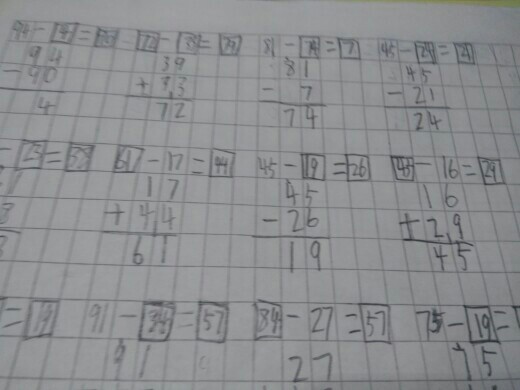 81 - 74 = 7 45 - 24 = 21
94 39 81 45
- 90 + 33 - 7 - 21
4 72 74 24
61 - 17 = 44 45 - 19 = 26 45 - 16 = 29
17 45 16
+ 44 - 26 + 29
61 19 45
91 - 34 = 57 84 - 27 = 57 75 - 19 =
91 27 75